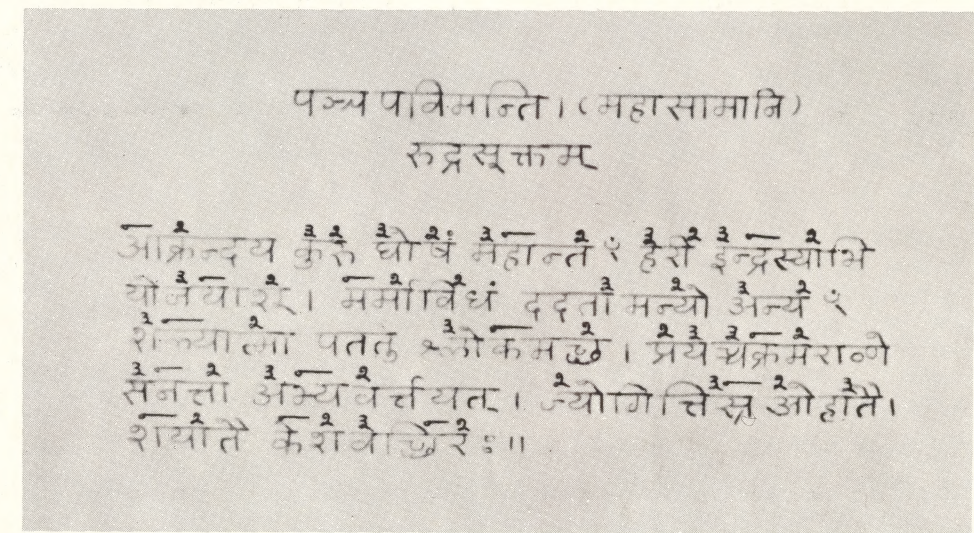 पञ्च पविमन्ति । (महासामानि)
रुद्रसूक्तम्
आक्रन्दय कुरु घोषं महान्तं ꣳ हरी इन्द्रस्याभि
योजयाशू । मर्माविधं ददता मन्यो अन्यं ꣳ
शल्यात्मा पततु श्लोकमच्छ ।
सनत्ता अभ्यवर्चयत् । ज्योगित्तिस्र ओहातै।
शयातै केशवर्च्छिरः॥